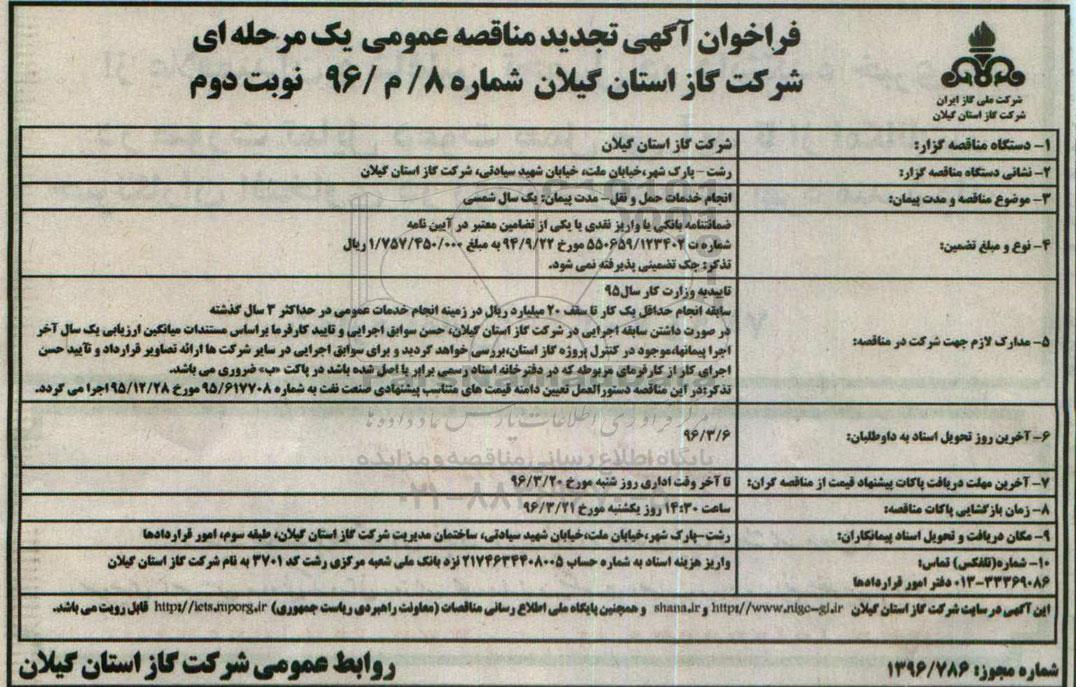 فراخوان آگهی تجدید مناقصه عمومی یک مرحله ای
شرکت گاز استان گیلان شماره ۸/ م /۹۶ نوبت دوم
شرکت ملی گاز ایران
شرکت گاز استان گیلان
۱- دستگاه مناقصه گزار: شرکت گاز استان گیلان
۲- نشانی دستگاه مناقصه گزار: رشت - پارک شهر،خیابان ملت، خیابان شهید سیادتی، شرکت گاز استان گیلان
۳- موضوع مناقصه و مدت پیمان: انجام خدمات حمل و نقل- مدت پیمان: یک سال شمسی
۴- نوع و مبلغ تضمین: ضمانتنامه بانکی یا واریز نقدی یا یکی از تضامین معتبر در آیین نامه
شماره ت ۵۵۰۶۵۹/۱۲۳۴۰۲ مورخ ۹۴/۹/۲۲ به مبلغ ۱/۷۵۷/۴۵۰/۰۰۰ ریال
تذکر: چک تضمینی پذیرفته نمی شود.
۵- مدارک لازم جهت شرکت در مناقصه: تاییدیه وزارت کار سال۹۵
سابقه انجام حداقل یک کار تا سقف ۲۰ میلیارد ریال در زمینه انجام خدمات عمومی در حداکثر ۳ سال گذشته
در صورت داشتن سابقه اجرایی در شرکت گاز استان گیلان، حسن سوابق اجرایی و تایید کارفرما براساس مستندات میانگین ارزیابی یک سال آخر
اجرا پیمانها،موجود در کنترل پروژه گاز استان،بررسی خواهد گردید و برای سوابق اجرایی در سایر شرکت ها ارائه تصاویر قرارداد و تآیید حسن
اجرای کار از کارفرمای مربوطه که در دفترخانه اسناد رسمی برابر با اصل شده باشد در پاکت «ب» ضروری می باشد.
تذکر:در این مناقصه دستورالعمل تعیین دامنه قیمت های متناسب پیشنهادی صنعت نفت به شماره ۹۵/۶۱۷۷۰۸ مورخ ۹۵/۱۲/۲۸ اجرا می گردد.
۶- آخرین روز تحویل اسناد به داوطلبان: ۹۶/۳/۶
۷- آخرین مهلت دریافت پاکات پیشنهاد قیمت از مناقصه گران: تا آخر وقت اداری روز شنبه مورخ ۹۶/۳/۲۰
۸- زمان بازگشایی پاکات مناقصه: ساعت ۱۴:۳۰ روز یکشنبه مورخ ۹۶/۳/۲۱
۹- مکان دریافت و تحویل اسناد پیمانکاران: رشت-پارک شهر،خیابان ملت،خیابان شهید سیادتی، ساختمان مدیریت شرکت گاز استان گیلان، طبقه سوم، امور قراردادها
۱۰- شماره(تلفکس) تماس: واریز هزینه اسناد به شماره حساب ۲۱۷۴۶۳۴۴۰۸۰۰۵ نزد بانک ملی شعبه مرکزی رشت کد ۳۷۰۱ به نام شرکت گاز استان گیلان
۰۱۳-۳۳۳۶۹۰۸۶ دفتر امور قراردادها
این آگهی در سایت شرکت گاز استان گیلان http://www.nigc-gl.ir و shana.ir و همچنین پایگاه ملی اطلاع رسانی مناقصات (معاونت راهبردی ریاست جمهوری) http://iets.mporg.ir قابل رویت می باشد.
شماره مجوز: ۱۳۹۶/۷۸۶
روابط عمومی شرکت گاز استان گیلان
مرکز فرآوری اطلاعات پارس نماد داده ها
پایگاه اطلاع رسانی مناقصه و مزایده